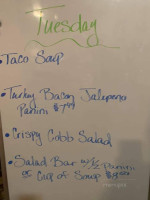 Tuesday
• Taco Soup
• Turkey Bacon Jalapeno
Panini $7.49
• Crispy Cobb Salad
• Salad Bar w/ 1/2 Panini
or Cup of Soup